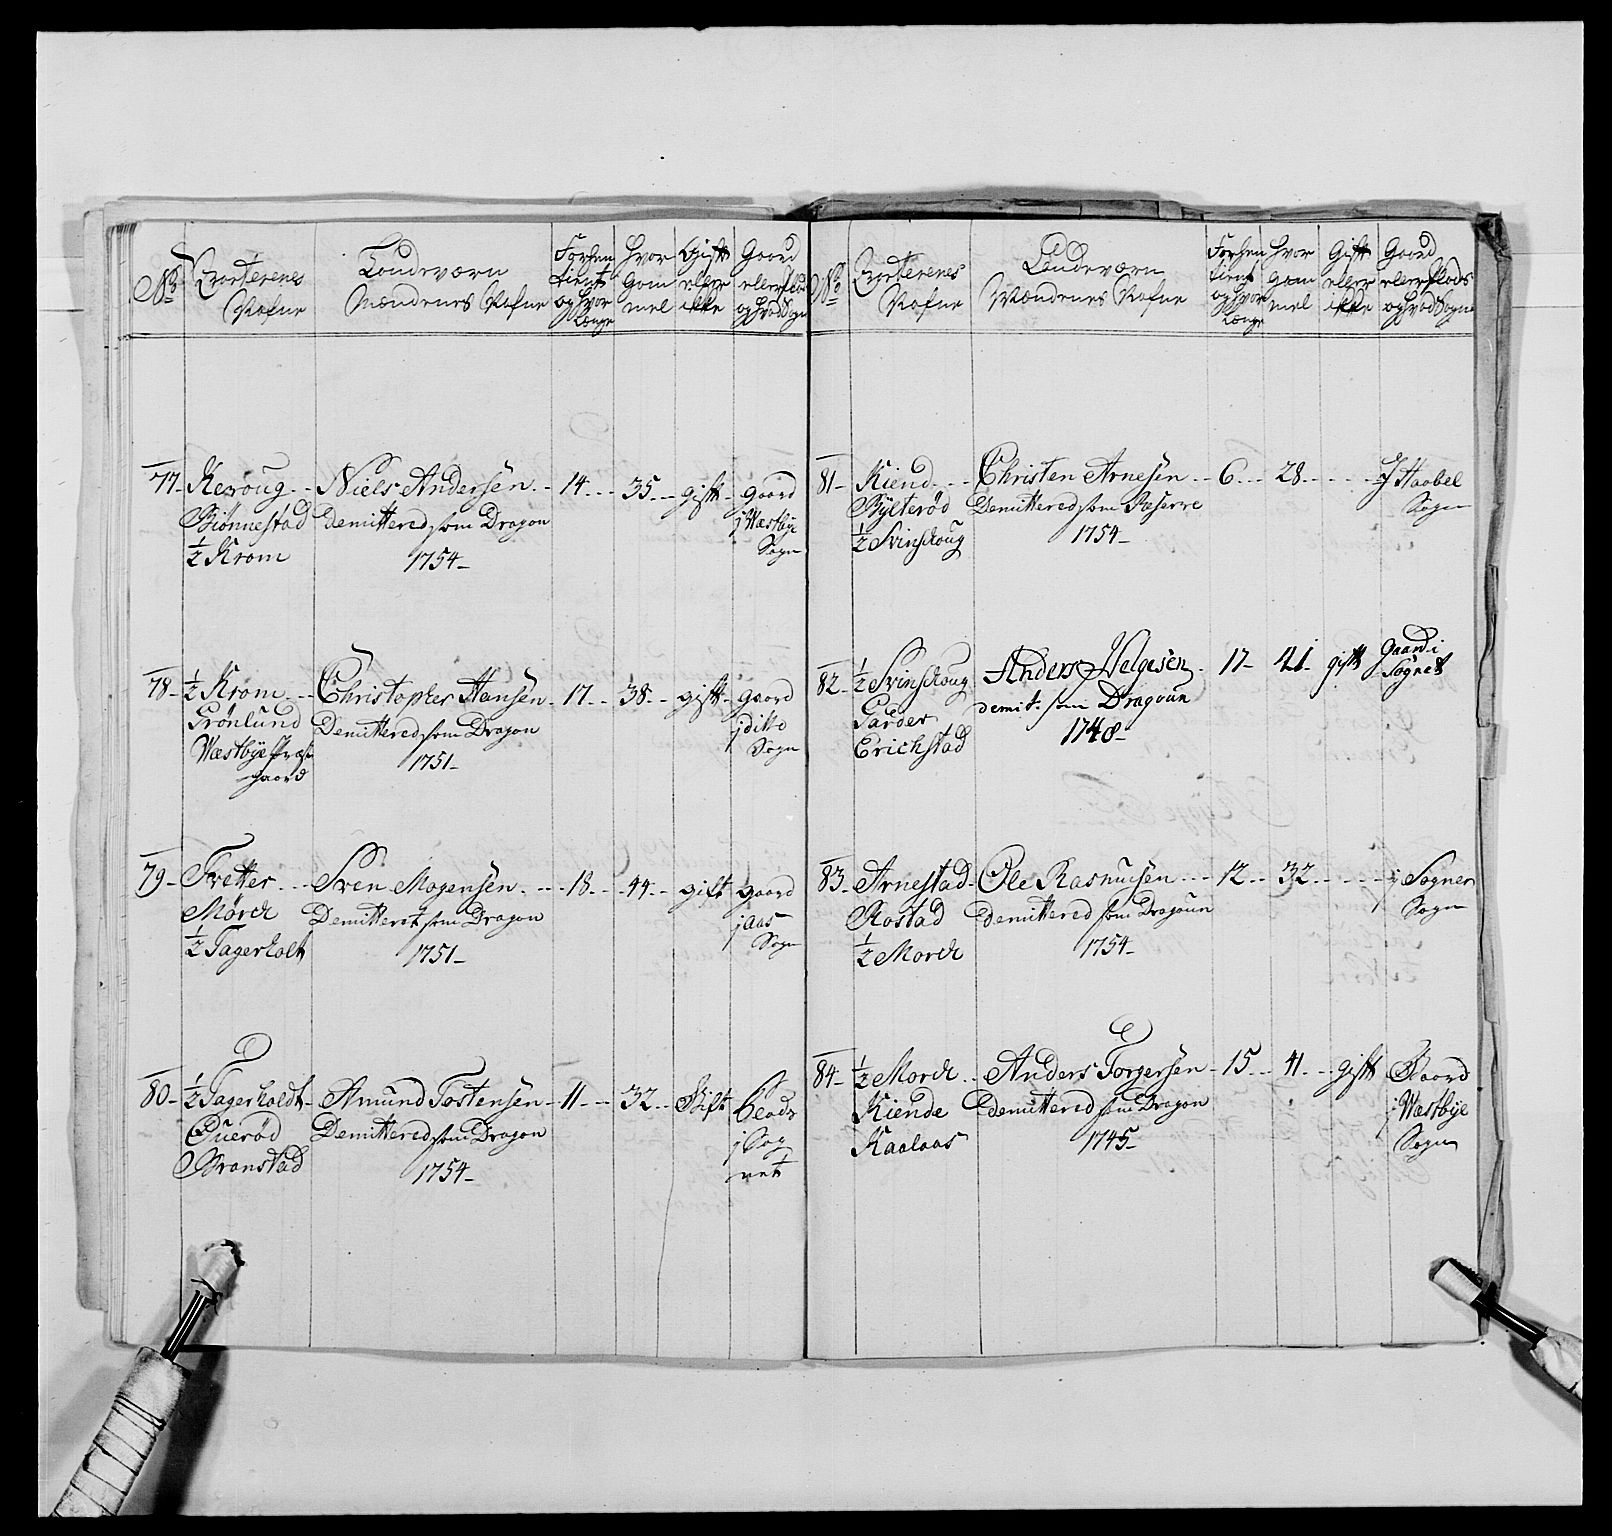 No
Qvarterenes
Nafne
Landeværn
Mændenes Nafne
Forhen
tient
og hvor
Længe
hvor
gam
mel
Gift
eller
ikke
Gaard
eller Plads
og hvad Sogn
77
Kexroug
Biønnestad
1/2 Krom
Niels Andersen
Demittered som Dragon
1754
14
35
gift
gaard
i Wæstbye
Sogn
78
1/2 Krom
Grønlund
Wæstbye Præste
gaard
Christopher Hansen
Demittered som Dragon
1751
17
38
gift
gaard
i ditto
Sogn
79
Tvetter
Mörch
1/2 Fagerholt
Sven Mogensen
Demitteret som Dragon
1751
18
44
gift
gaard
i Aas
Sogn
80
1/2 Fagerholdt
Duerød
Branstad
Amund Tostensen
Demittered som Dragon
1754
11
32
Gift
Plads
i Sog
net
No
Qvarterenes
Nafne
Landeværn
Mændenes Nafne
Forhen
tient
og hvor
Længe
hvor
gam
mel
Gift
eller
ikke
Gaard
eller Plads
og hvad Sogn
81
Kiend
Bylterød
1/2 Svinskoug
Christen Arnesen
Demittered som Reserve
1754
6
28
I Haabel
Sogn
82
1/2 Svinskoug
Garder
Erichstad
Anders Helgesen
demit. som Dragoun
1748
17
41
gift
gaard i
Sognet
83
Arnestad
Rostad
1/2 Morch
Ole Rasmusen
Demittered som Dragoun
1754
12
32
i Sogner
Sogn
84
1/2 Morch
Kiende
Kaalaas
Anders Torgersen
Demittered som Dragon
1745
15
41
gift
Gaard
i Wæstbye
Sogn